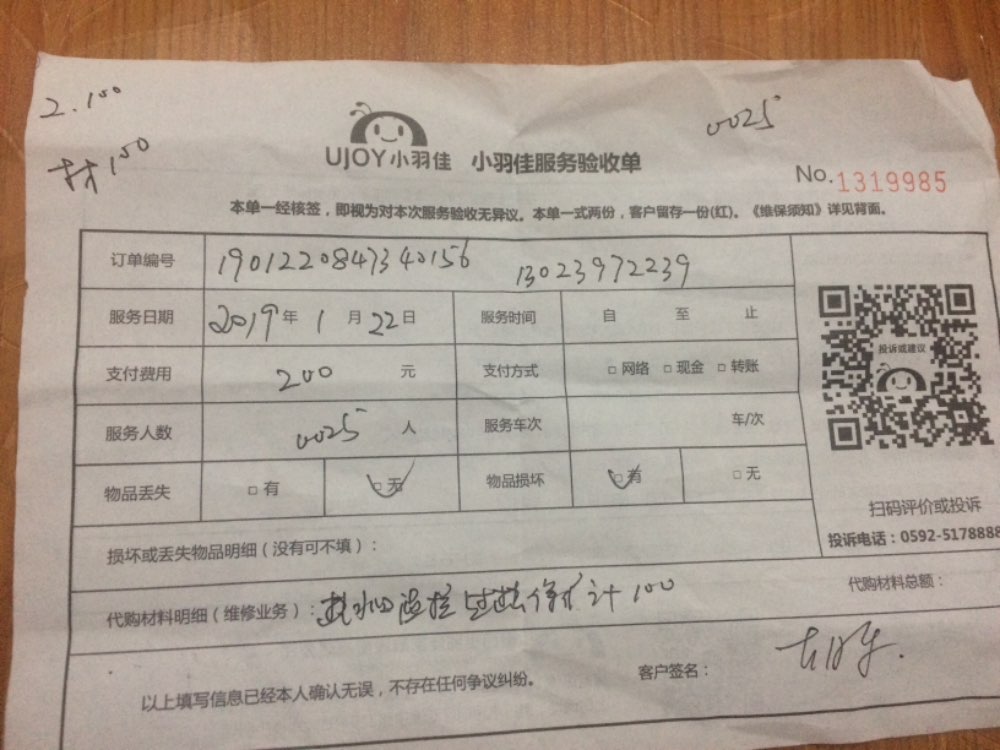 2.100
材100
0025
UJOY小羽佳 小羽佳服务验收单
No.1319985
本单一经核签，即视为对本次服务验收无异议。本单一式两份，客户留存一份(红)。《维保须知》详见背面。
订单编号 1901220847340156 13023972239
服务日期 2019年1月22日 服务时间 自 至 止
投诉或建议
支付费用 200 元 支付方式 □网络 □现金 □转账
服务人数 0025 人 服务车次 车/次
物品丢失 □有 □无 物品损坏 □有 □无
扫码评价或投诉
投诉电话：0592-5178888
损坏或丢失物品明细（没有可不填）：
代购材料明细（维修业务）： 计100
代购材料总额：
客户签名：
以上填写信息已经本人确认无误，不存在任何争议纠纷。